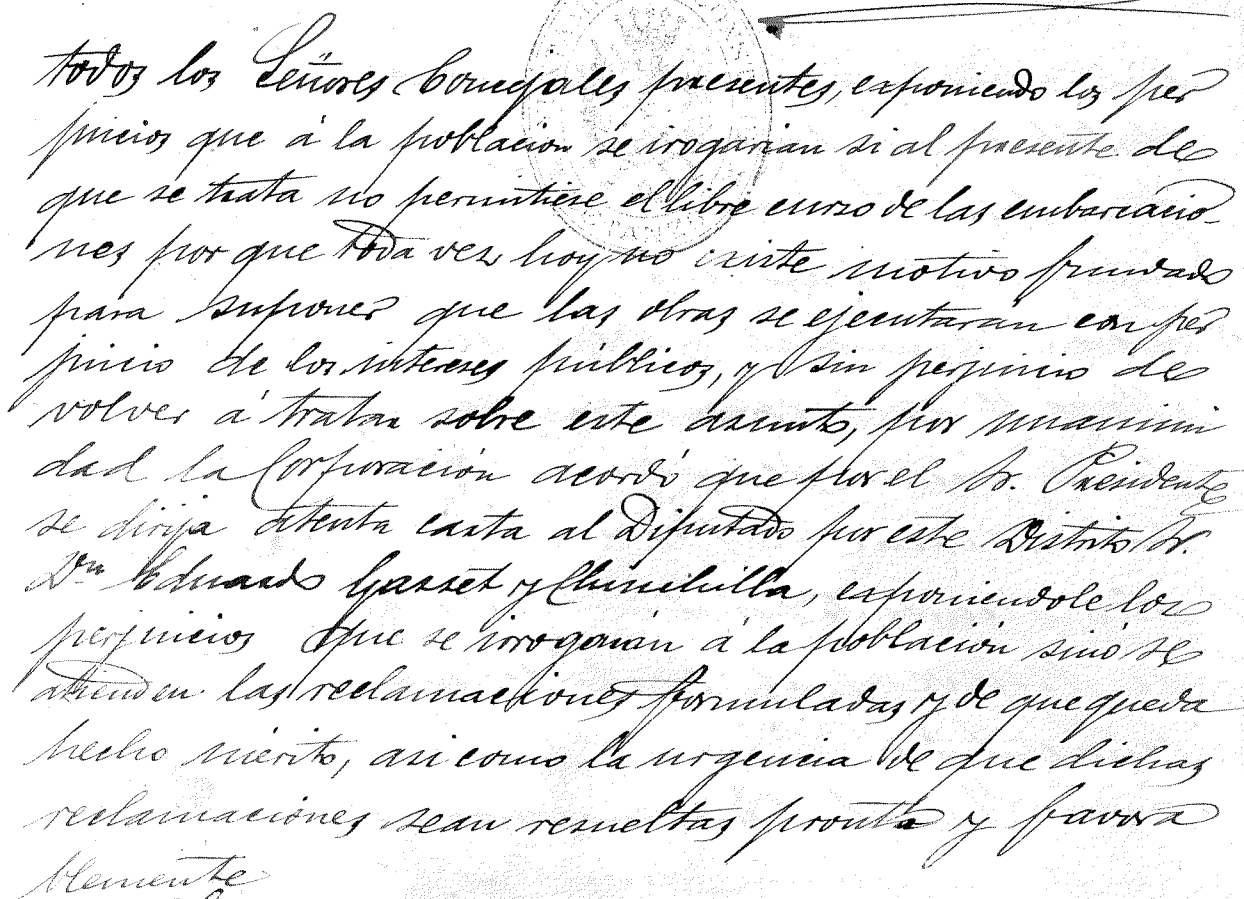 todos los Señores Concejales presentes, exponiendo los per
juicios que á la poblacion se irogarian si al presente de
que se trata no permitiese el libre curso de las embarcacio-
nes por que toda vez hoy no existe motivo fundado
para suponer que las obras se ejecutaran con per
juicio de los intereses públicos, y sin perjuicio de
volver á tratar sobre este asunto, por unanimi
dad la Corporación acordó que por el Sr. Presidente
se dirija atenta carta al Diputado por este Distrito Sr.
Dn Eduardo Gasset y Chinchilla, exponiendole los
perjuicios que se irrogarian á la población sino se
atienden las reclamaciones formuladas y de que queda
hecho mérito, asi como la urgencia de que dichas
reclamaciones sean resueltas pronta y favora
blemente